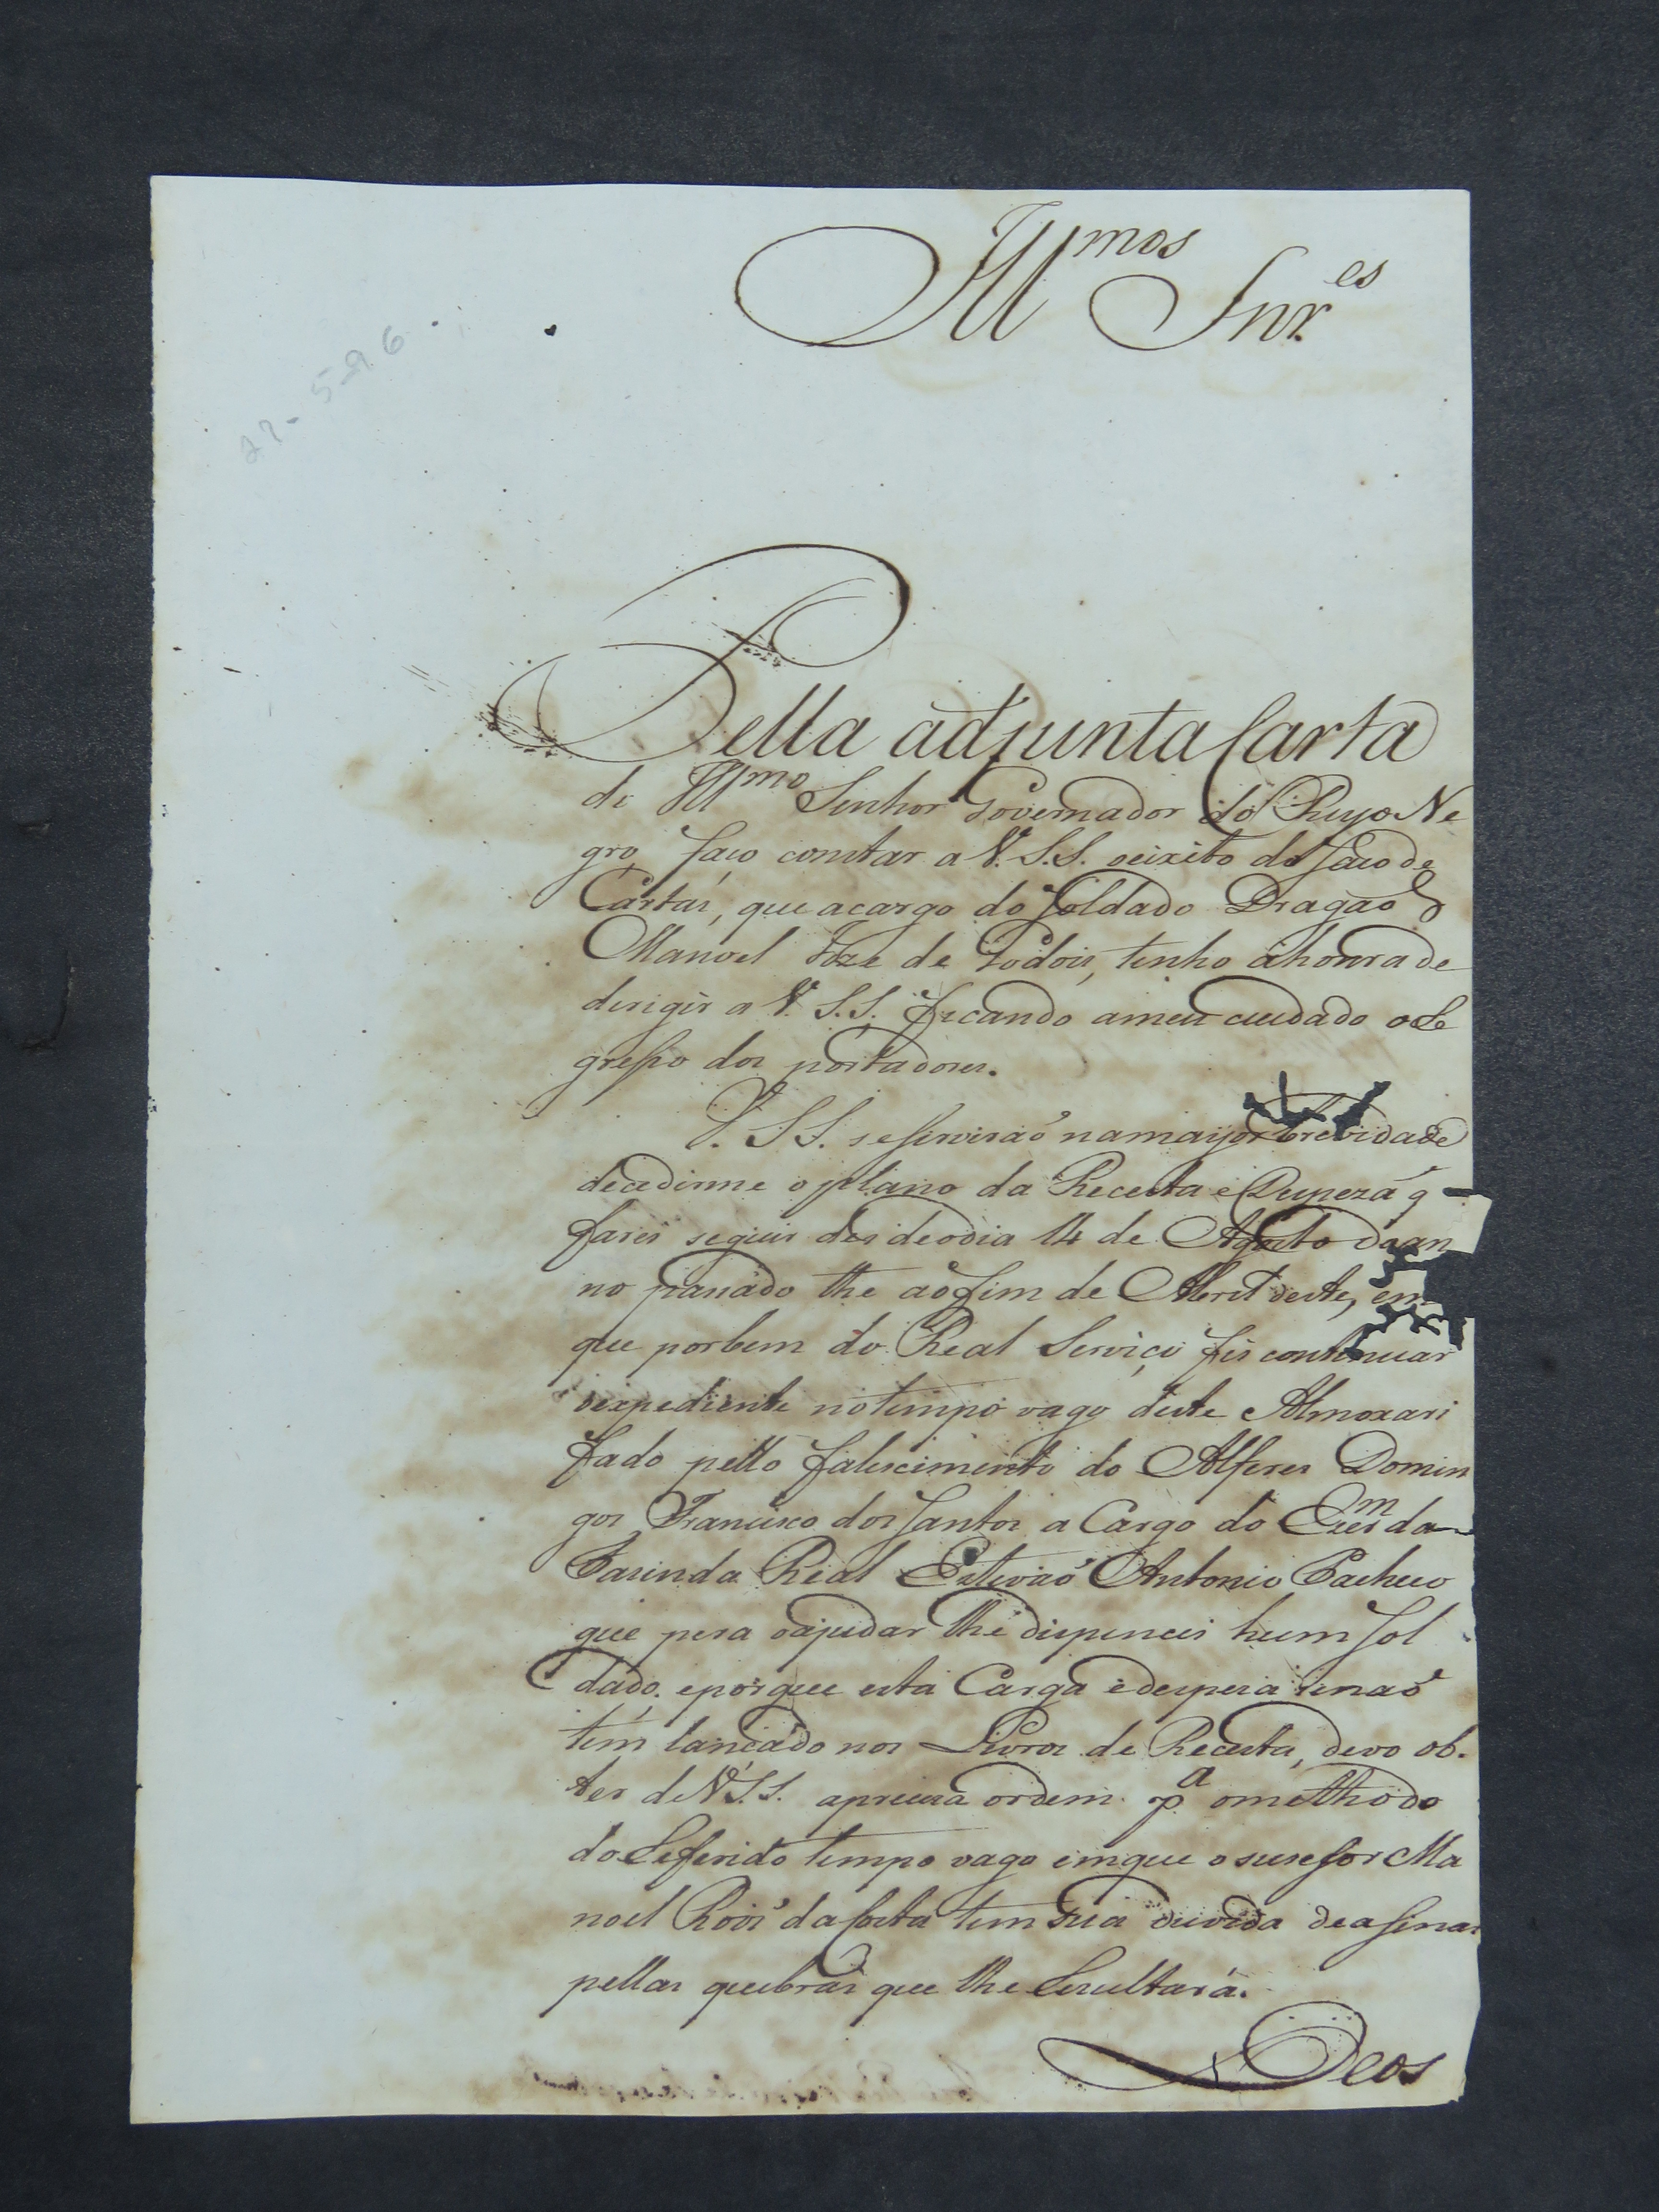 27-5-96
Ill.mos Snr.es
Pella adjunta Carta
do Ill.mo Senhor Governador do Ryo Ne
gro, faço constar a V. S.S. oeixito do Saco de
Cartas, que acargo do Soldado Dragaõ
Manoel Joze de Godois, tenho ahonra de
dirigir a V. S.S. ficando ameu cuidado oRe
gresso dos portadores.
V. S.S. seservirão namayor brevidade
decedirme o plano da Receita e Despeza q
farei seguir des deodia 14 de Agosto doan
no passado the aofim de Abril deste, em
que porbem do Real Serviço fis continuar
oexpediente notempo vago deste Almoxari
fado pello falescimento do Alferes Domin
gos Francisco dos Santos a Cargo do Escr.m da
Fazenda Real Estevaõ Antonio Pacheco
que pera oajudar lhe dispencei hum Sol
dado. eporque esta Carga edespeza senaõ
tem lançado nos Livros de Receita, devo ob-
ter de V.S.S. apreciza ordem p.a omethodo
do Referido tempo vago emque o sucessor Ma
noel Roiz da Costa tem sua duvida deasinar
pellas quebras que lhe Rezultará.
Deos